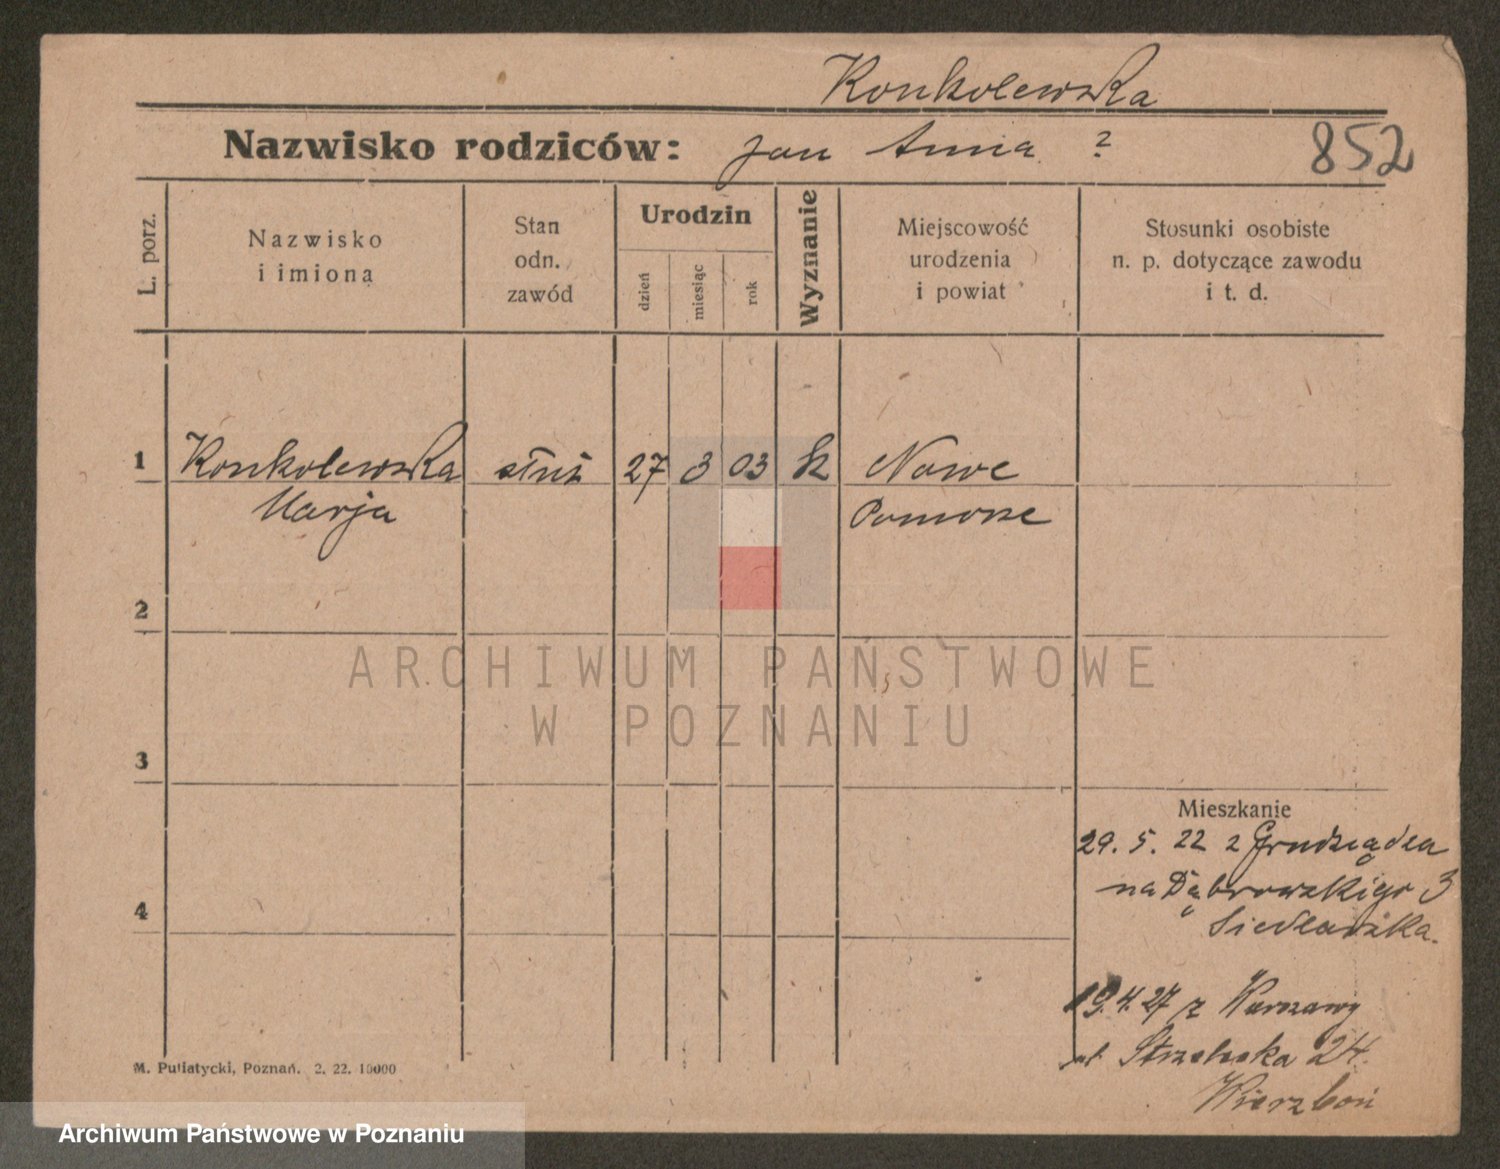 Konkolewska
Nazwisko rodziców: Jan Annа ?
852
L. porz.
Nazwisko
i imiona
Stan
odn.
zawód
Urodzin
dzień
miesiąc
rok
Wyznanie
Miejscowość
urodzenia
i powiat
Stosunki osobiste
n. p. dotyczące zawodu
i t. d.
1 Konkolewska służ 27 3 03 k Nowe
Marja Pomorze
2
ARCHIWUM PAŃSTWOWE
W POZNANIU
3
Mieszkanie
29. 5. 22 z Grudziądza
na Dąbrowskiego 3
4
Siedlaczka.
19.4.27 z Warszawy
ul. Strzelecka 24.
M. Putiatycki, Poznań. 2. 22. 10000
Archiwum Państwowe w Poznaniu